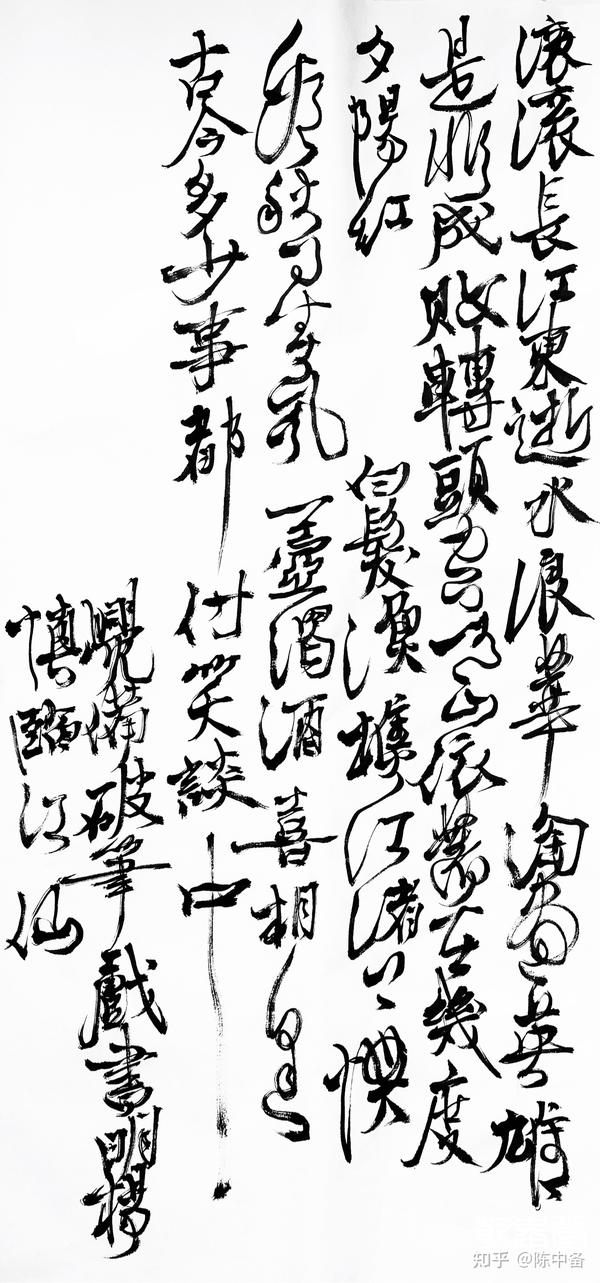 滾滾長江東逝水浪華淘盡英雄
是非成敗轉頭空青山依舊在幾度
夕陽紅 白髮漁樵江渚上慣
看秋月春風 一壺濁酒喜相逢
古今多少事都付笑談中
覺備破筆戲書明楊
慎臨江仙
知乎 @陈中备